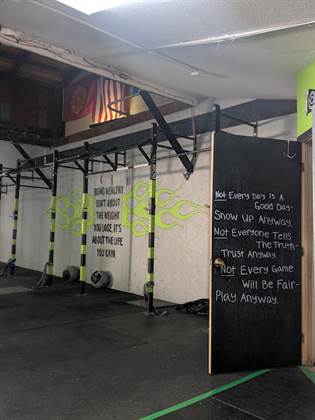 BEING HEALTHY
ISN'T ABOUT
THE WEIGHT
YOU LOSE. IT'S
ABOUT THE LIFE
YOU GAIN.
Not Every Day Is A
Good Day-
Show Up Anyway.
Not Everyone Tells
The Truth-
Trust Anyway.
Not Every Game
Will Be Fair-
Play Anyway.